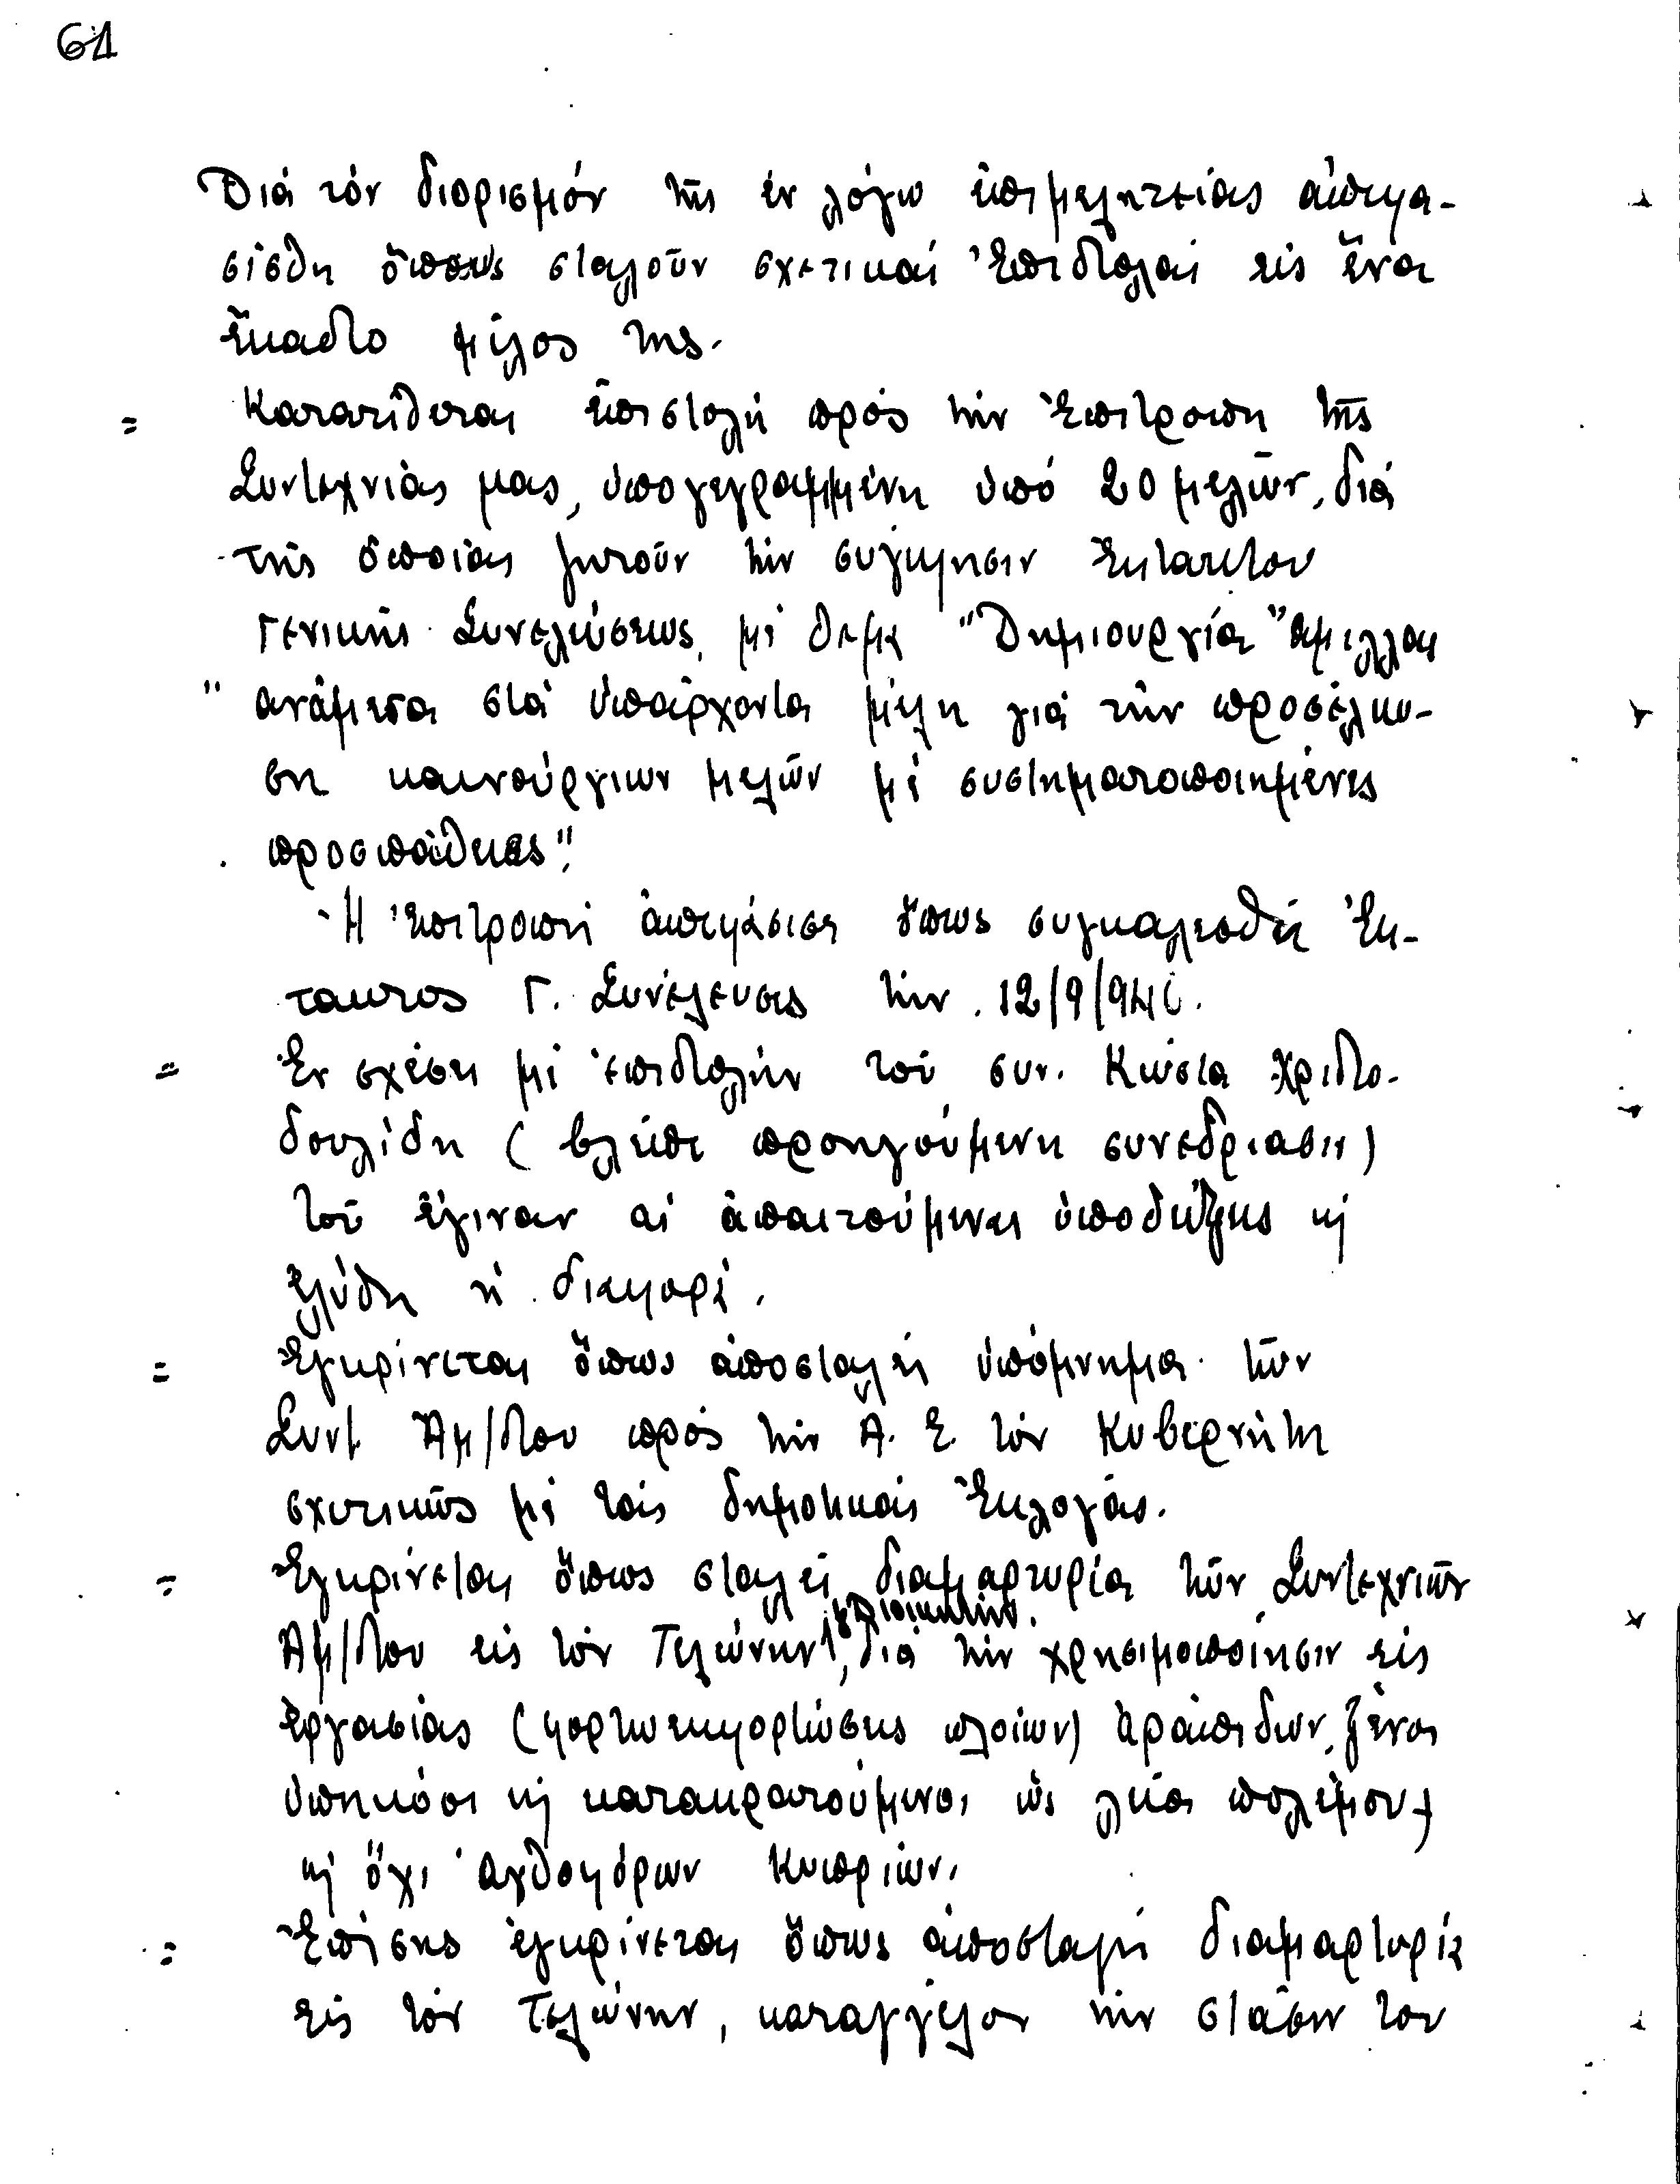 61
Διά τόν διορισμόν τῆς ἐν λόγω ἐπιμελητείας ἀπεφα-
σίσθη ὅπως σταλοῦν σχετικαί Ἐπιστολαί εἰς ἕνα
ἕκαστο μέλος της.
= Κατατίθεται ἐπιστολή πρός τήν Ἐπιτροπή τῆς
Συντεχνίας μας, ὑπογεγραμμένη ὑπό 20 μελῶν, διά
τῆς ὁποίας ζητοῦν τήν συγκλησιν Ἐκτατκτου
Γενικῆς Συνελεύσεως, μέ θεμα "Δημιουργία ἅμιλλας
" ἀνάμεσα στά ὑπάρχοντα μέλη γιά τήν προσέλκυ-
ση καινούργιων μελῶν μέ συστηματοποιημένες
προσπάθειες".
Ἡ ἐπιτροπή ἀπεφάσισε ὅπως συγκαλεσθῆ Ἐκ-
τακτος Γ. Συνέλευσις τήν 12/9/946.
= Ἐν σχέσει μέ ἐπιστολήν τοῦ συν. Κώστα Χριστο-
δουλίδη (βλέπε προηγούμενη συνεδρίαση)
τοῦ ἔγιναν αἱ ἀπαιτούμεναι ὑποδείξεις κ
ἐλύθη ἡ διαφορά.
= Ἐγκρίνεται ὅπως ἀποσταλεῖ ὑπόμνημα τῶν
Συντ. Ἀμ/στου πρός τήν Α. Ε. τόν Κυβερνήτη
σχετικῶς μέ τάς δημοτικάς Ἐκλογάς.
= Ἐγκρίνεται ὅπως σταλεῖ διαμαρτυρία τῶν Συντεχνιῶν
Ἀμ/στου εἰς τόν Τελώνην, διά τήν χρησιμοποίησιν εἰς
ἐργασίας (φορτωεκφορτώσεις πλοίων) ἀράπιδων, ξένοι
ὑπηκόοι κ κατακρατούμενοι ὡς λεία πολέμου,
κ ὄχι ἀχθοφόρων Κυπρίων.
= Ἐπίσης ἐγκρίνεται ὅπως ἀποσταλῆ διαμαρτυρία
εἰς τόν Τελώνην, καταγγέλον τήν στάσιν του